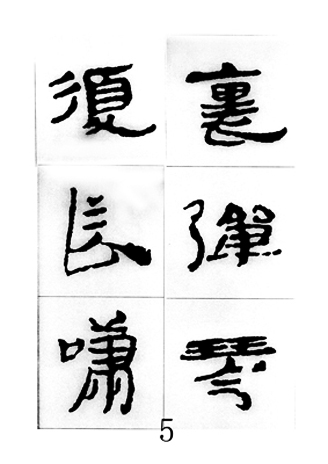 裏彈琴
復長嘯
5